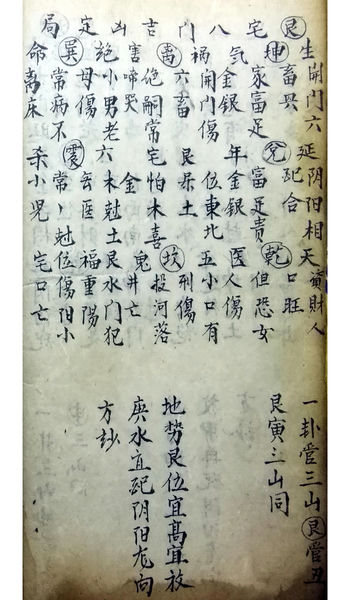 艮宅八門吉凶定局
生開門六畜興延阴阳相配合天資財人口旺
坤家富足兌富足貴乾但恐女
氣金銀年金銀医人傷
禍開門傷位東北五小口有
離六畜艮属土坎刑傷
害絕嗣常宅怕木喜鬼投河落
啼哭金井亡
絕小男老六木尅土艮水門犯
巽母傷震医福重陽
命常病不常丶尅位傷阳小
離床杀小児宅口亡
一卦管三山艮管丑
艮寅三山同
地势艮位宜高宜放
庚水宜配阴阳龙向
方妙